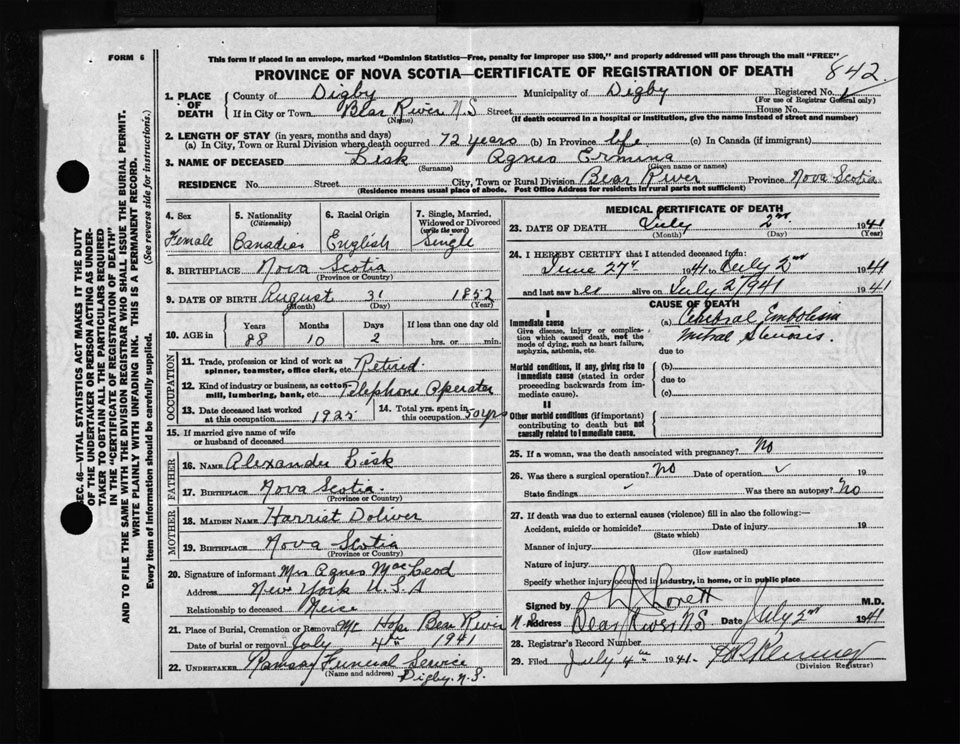 FORM 6
This form if placed in an envelope, marked "Dominion Statistics—Free, penalty for improper use $300," and properly addressed will pass through the mail "FREE"
842
PROVINCE OF NOVA SCOTIA—CERTIFICATE OF REGISTRATION OF DEATH
1. PLACE OF DEATH
County of Digby Municipality of Digby Registered No.
(For use of Registrar General only)
If in City or Town Bear River N.S Street House No.
(Name) (If death occurred in a hospital or institution, give the name instead of street and number)
2. LENGTH OF STAY (in years, months and days)
(a) In City, Town or Rural Division where death occurred 72 years (b) In Province life (c) In Canada (if immigrant)
3. NAME OF DECEASED Lisk Agnes Ermina
(Surname) (Given name or names)
RESIDENCE No. Street City, Town or Rural Division Bear River Province Nova Scotia
(Residence means usual place of abode. Post Office Address for residents in rural parts not sufficient)
4. Sex
Female
5. Nationality (Citizenship)
Canadian
6. Racial Origin
English
7. Single, Married, Widowed or Divorced (write the word)
Single
8. BIRTHPLACE Nova Scotia
(Province or Country)
9. DATE OF BIRTH August 31 1852
(Month) (Day) (Year)
10. AGE in
Years Months Days If less than one day old
88 10 2 hrs. or min.
OCCUPATION
11. Trade, profession or kind of work as spinner, teamster, office clerk, etc. Retired
12. Kind of industry or business, as cotton mill, lumbering, bank, etc. Telephone Operator
13. Date deceased last worked at this occupation 1925
14. Total yrs. spent in this occupation 50 yrs
15. If married give name of wife or husband of deceased
FATHER
16. NAME Alexander Lisk
17. BIRTHPLACE Nova Scotia.
(Province or Country)
MOTHER
18. MAIDEN NAME Harriet Doliver
19. BIRTHPLACE Nova Scotia
(Province or Country)
20. Signature of informant Mrs Agnes MacLeod
Address New York U.S.A
Relationship to deceased Neice
21. Place of Burial, Cremation or Removal Mt Hope Bear River
Date of burial or removal July 4th 1941
22. UNDERTAKER Ramsay Funeral Service
(Name and address) Digby. N.S.
MEDICAL CERTIFICATE OF DEATH
23. DATE OF DEATH July 2nd 1941
(Month) (Day) (Year)
24. I HEREBY CERTIFY that I attended deceased from:
June 27th 1941 to July 2nd 1941
and last saw her alive on July 2 1941 1941
CAUSE OF DEATH
I
Immediate cause
Give disease, injury or complication which caused death, not the mode of dying, such as heart failure, asphyxia, asthenia, etc.
(a) Cerebral Embolism
Mitral Stenosis.
due to
Morbid conditions, if any, giving rise to immediate cause (stated in order proceeding backwards from immediate cause).
(b)
due to
(c)
II
Other morbid conditions (if important) contributing to death but not causally related to immediate cause.
25. If a woman, was the death associated with pregnancy? No
26. Was there a surgical operation? No Date of operation 19
State findings Was there an autopsy? No
27. If death was due to external causes (violence) fill in also the following:—
Accident, suicide or homicide? Date of injury 19
(State which)
Manner of injury
(How sustained)
Nature of injury
Specify whether injury occurred in industry, in home, or in public place
Signed by Lovett M.D.
Address Bear River N.S Date July 2nd 1941
28. Registrar's Record Number
29. Filed July 4th 1941.
(Division Registrar)
SEC. 46—VITAL STATISTICS ACT MAKES IT THE DUTY
OF THE UNDERTAKER OR PERSON ACTING AS UNDER-
TAKER TO OBTAIN ALL THE PARTICULARS REQUIRED
IN THE "CERTIFICATE OF REGISTRATION OF DEATH"
AND TO FILE THE SAME WITH THE DIVISION REGISTRAR WHO SHALL ISSUE THE BURIAL PERMIT.
WRITE PLAINLY WITH UNFADING INK. THIS IS A PERMANENT RECORD.
Every item of information should be carefully supplied. (See reverse side for instructions.)